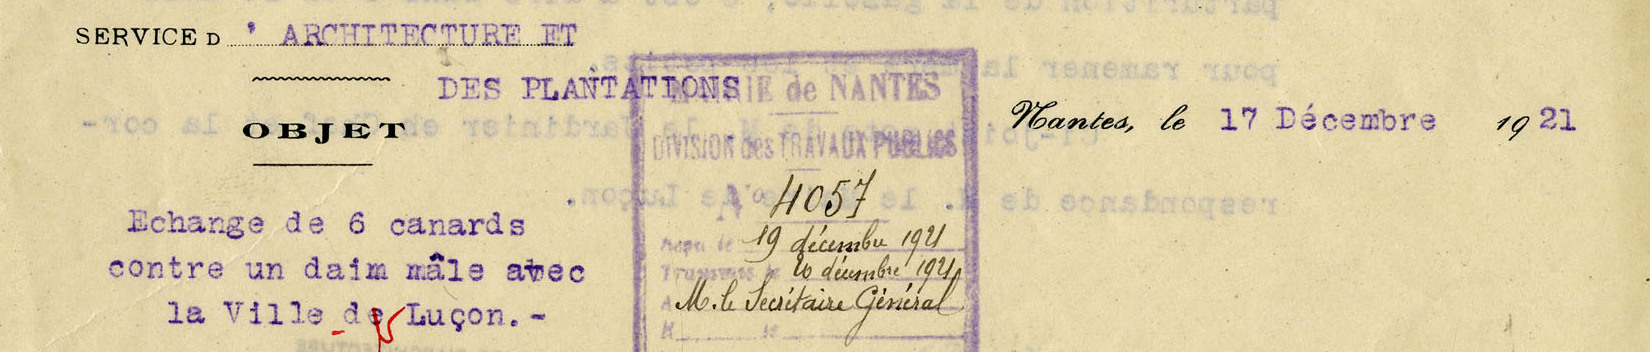 SERVICE D ' ARCHITECTURE ET
DES PLANTATIONS
OBJET
Echange de 6 canards
contre un daim mâle avec
la Ville de Luçon.-
MAIRIE de NANTES
DIVISION des TRAVAUX PUBLICS
No 4057
Reçu le 19 décembre 1921
Transmis le 20 décembre 1921
A M. le Secrétaire Général
M le
Nantes, le 17 Décembre 1921